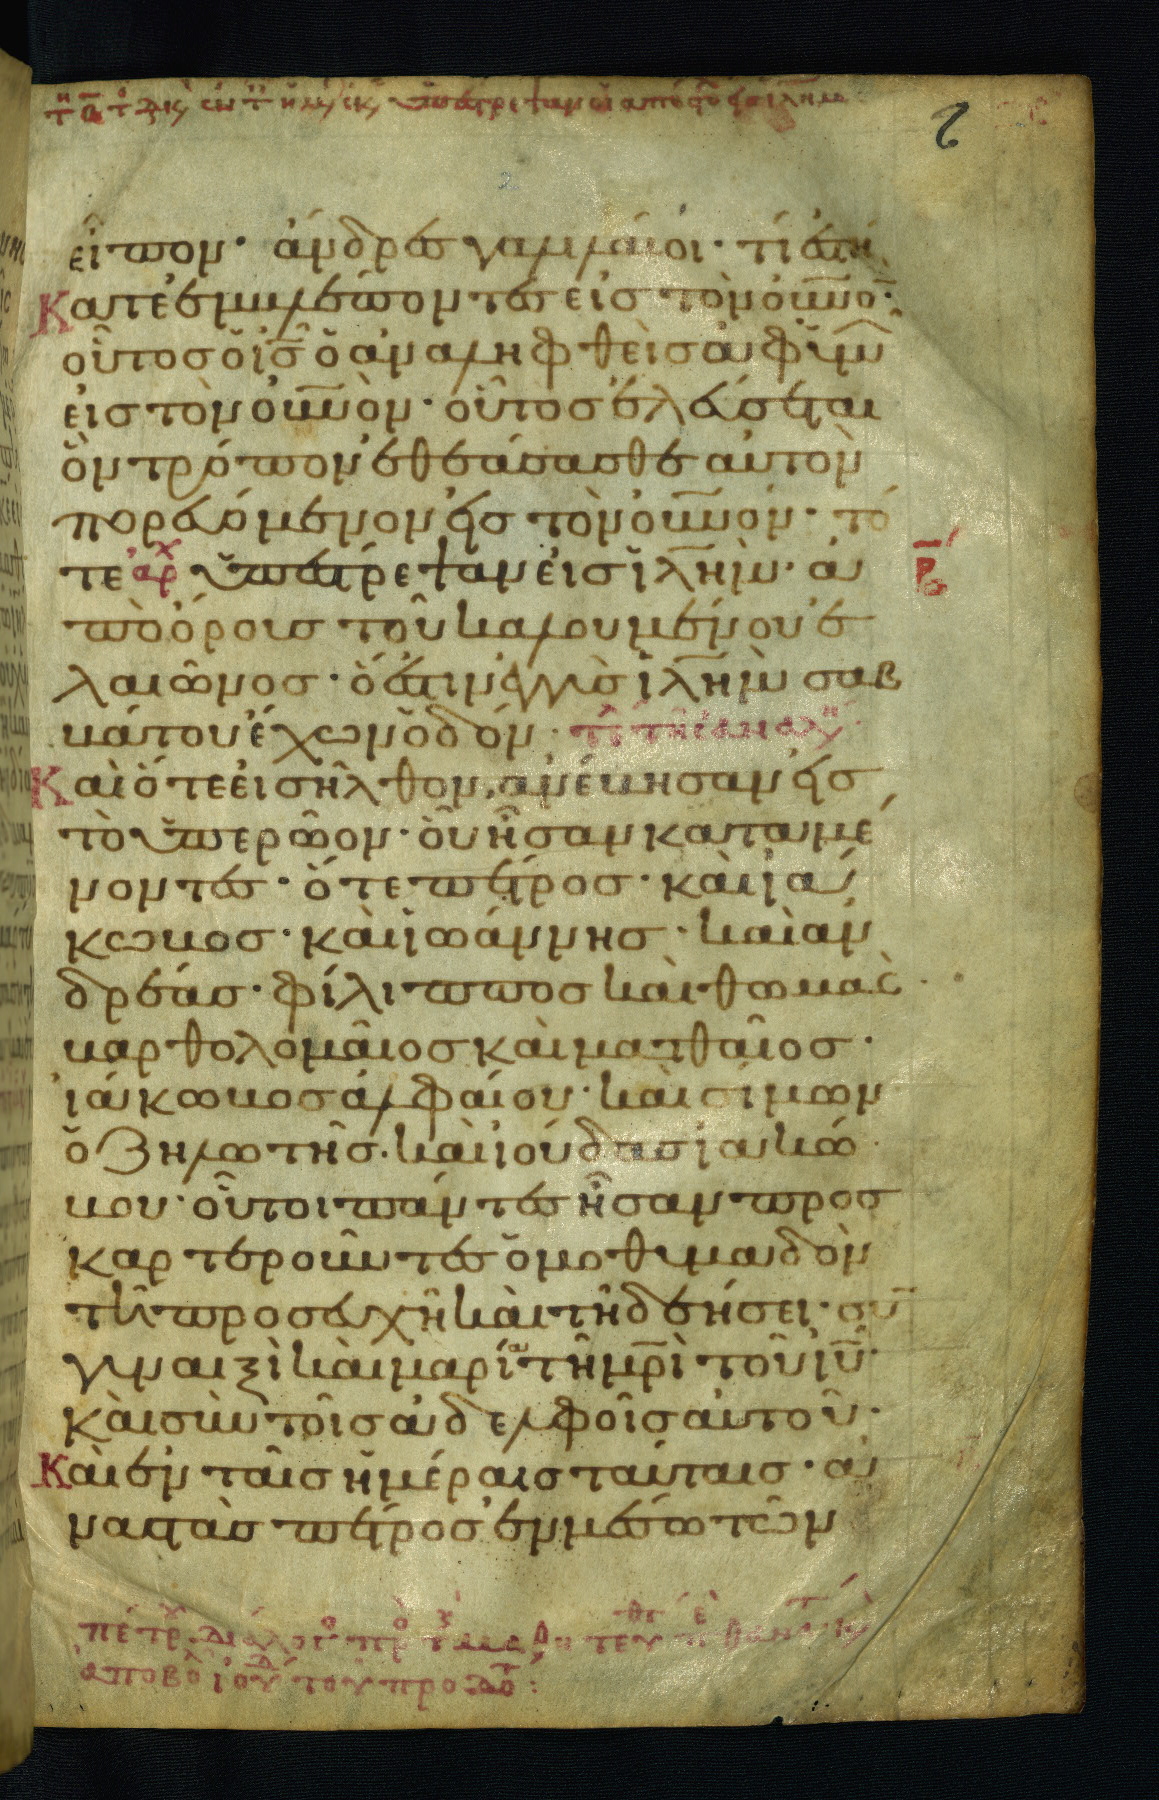 εἶπον· ἄνδρες γαλιλαῖοι· τί ἑστή
Κατε ἐμβλέποντες εἰς τὸν οὐνον·
οὗτος ὁ ις ὁ ἀναληφθεὶς ἀφ ὑμῶν
εἰς τὸν οὐνὸν· οὕτως ἐλεύσεται
ὃν τρόπον ἐθεάσασθε αὐτὸν
πορευόμενον εἰς τὸν οὐνόν· τό
τε ἀρχ ὑπέστρεψαν εἰς ἱλὴμ· ἀ
πὸ ὄρους τοῦ καλουμένου ἐ
λαιῶνος· ὅ ἐστιν ἐγγὺς ἱλὴμ σαβ
βάτου ἔχων ὁδόν·
Καὶ ὅτε εἰσῆλθον, ἀνέβησαν εἰς
τὸ ὑπερῶον· οὗ ἦσαν καταμέ
νοντες· ὅ τε πέτρος· καὶ ἰά
κωβος· καὶ ἰωάννης· καὶ ἀν
δρέας· φίλιππος καὶ θωμὰς
βαρθολομαῖος καὶ ματθαῖος·
ἰάκωβος ἀλφαίου· καὶ σίμων
ὁ ζηλωτῆς· καὶ ἰούδας ἰακώ
βου· οὗτοι πάντες ἦσαν προς
καρτεροῦντες ὁμοθυμαδὸν
τῆ προσευχῆ καὶ τῆ δεήσει· συν
γυναιξὶ καὶ μαρία τῆ μρὶ τοῦ ιυ·
καὶ σὺν τοῖς ἀδελφοῖς αὐτοῦ·
Καὶ ἐν ταῖς ἡμέραις ταύταις· ἀ
ναστὰς πέτρος ἐν μέσω τῶν